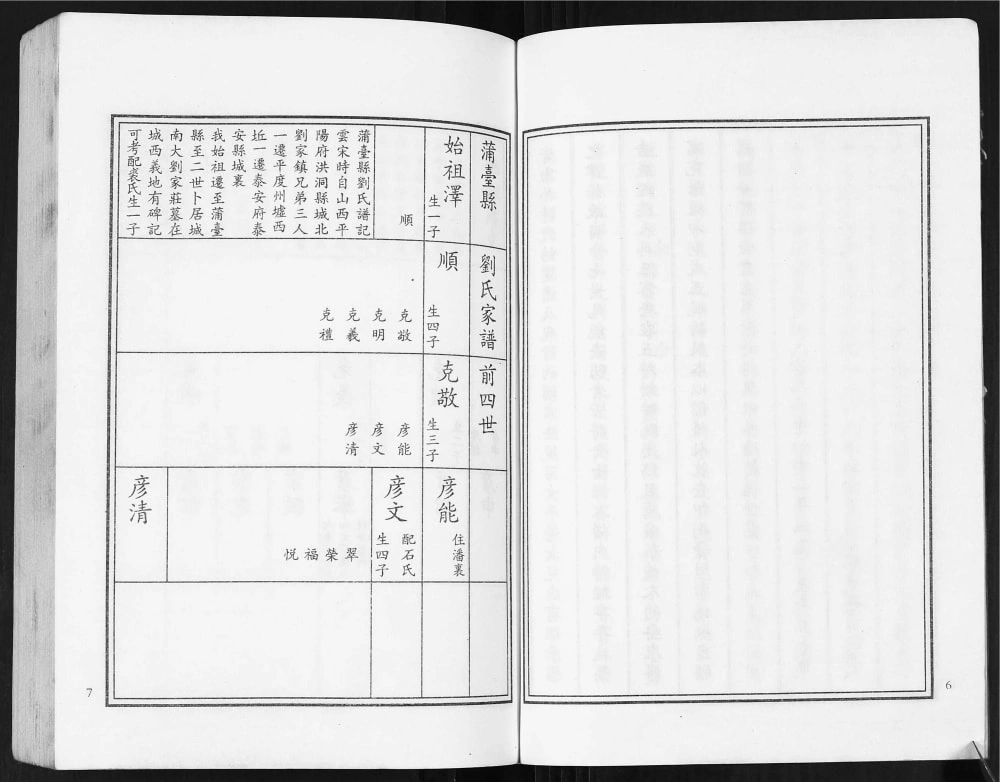 6
蒲臺縣
劉氏家譜
前四世
始祖澤
生一子
順
蒲臺縣劉氏譜記
雲宋時自山西平
陽府洪洞縣城北
劉家鎮兄弟三人
一遷平度州墟西
坵一遷泰安府泰
安縣城裏
我始祖遷至蒲臺
縣至二世卜居城
南大劉家莊墓在
城西義地有碑記
可考配裘氏生一子
順
生四子
克敬
克明
克義
克禮
克敬
生三子
彦能
彦文
彦清
彦能
住潘裏
彦文
配石氏
生四子
翠
榮
福
悦
彦清
7